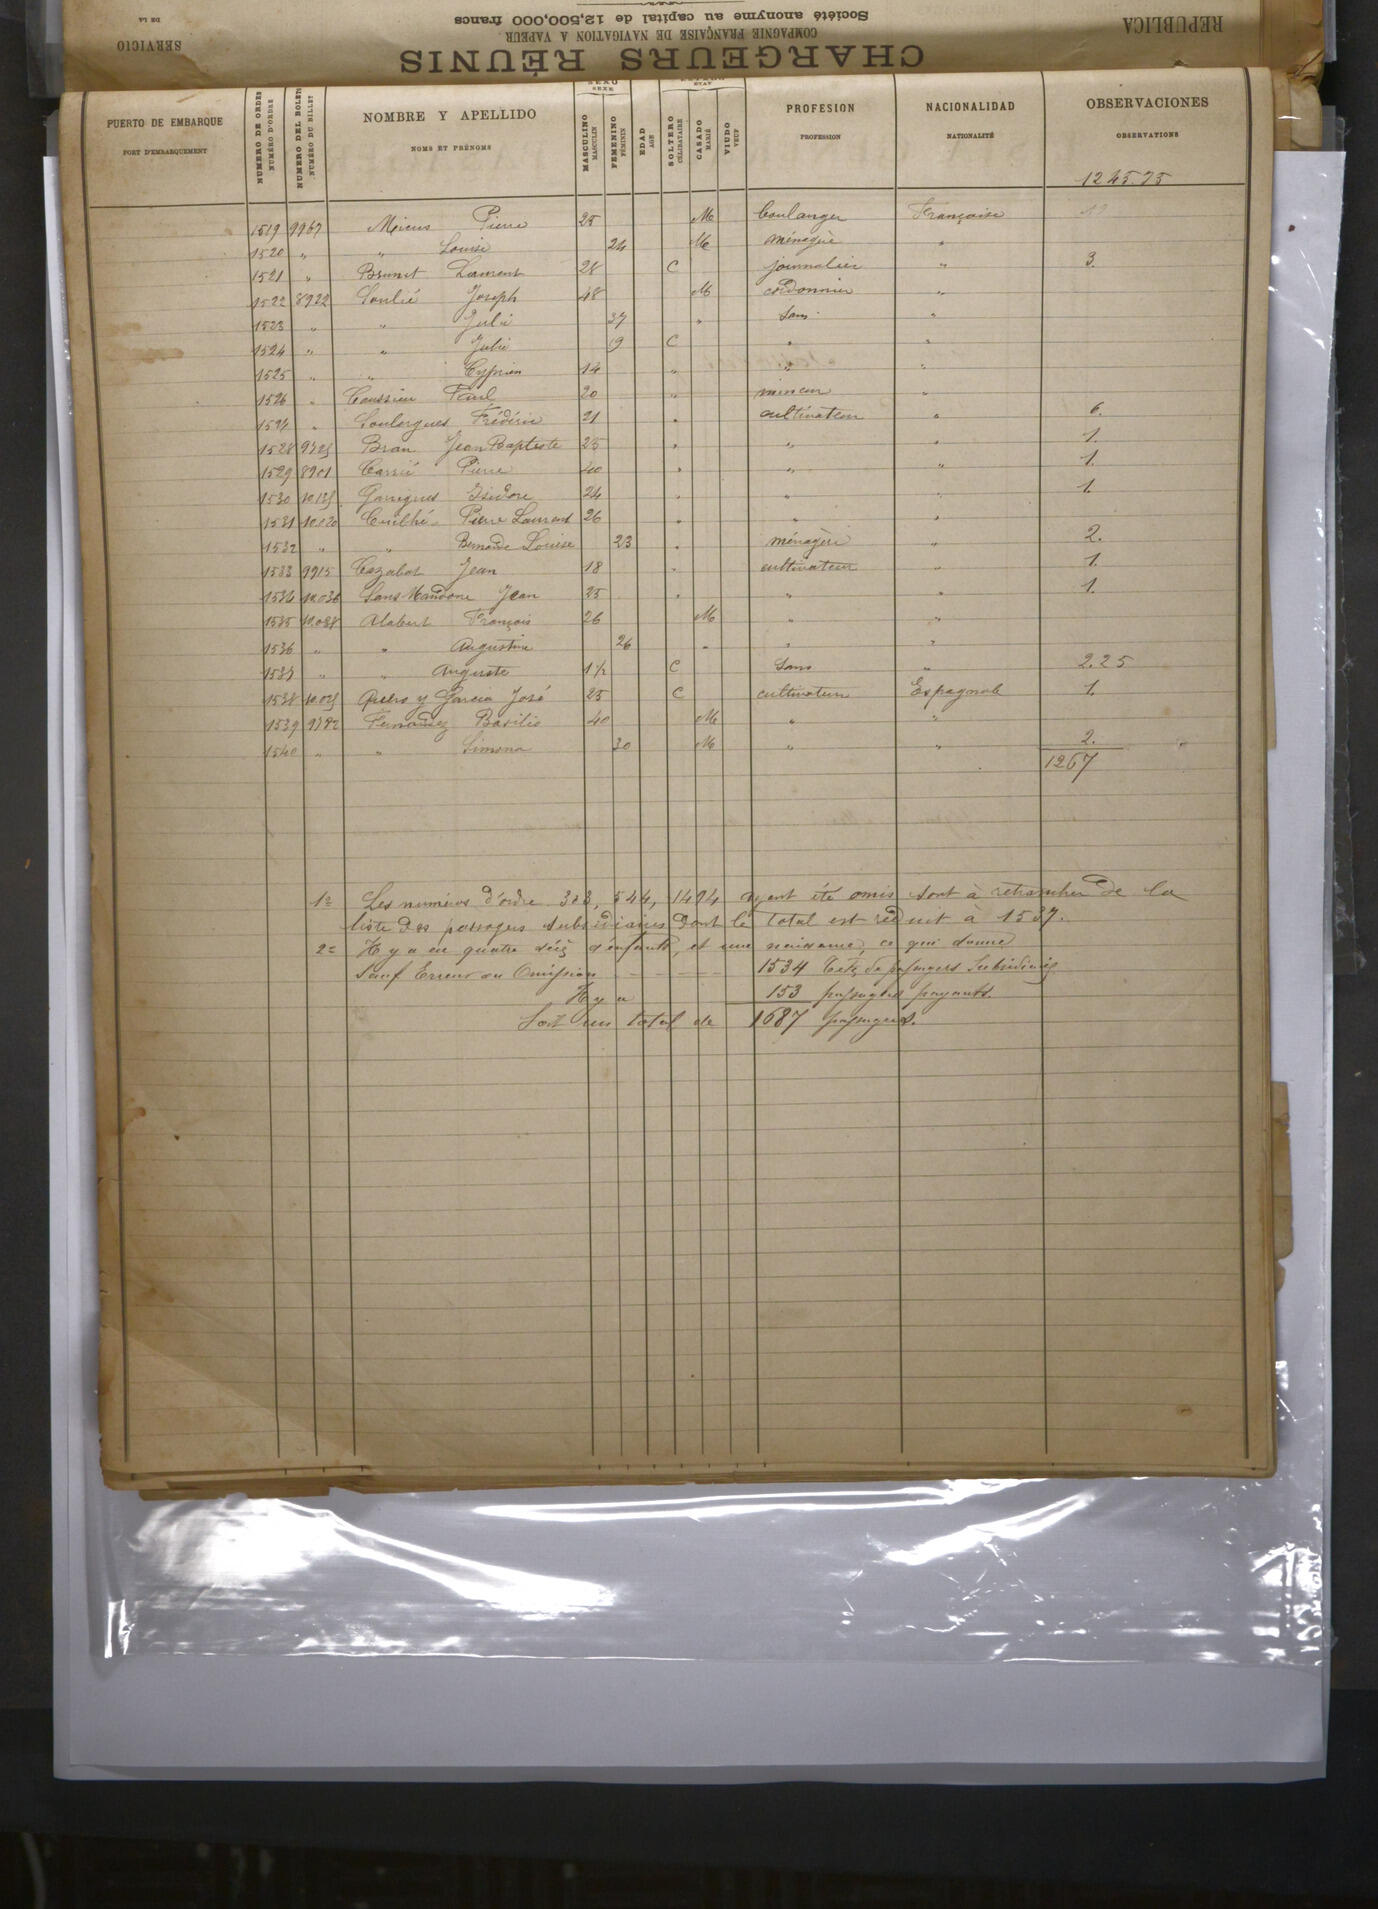 REPUBLICA
SERVICIO
DE LA
Société anonyme au capital de 12,500,000 francs
COMPAGNIE FRANÇAISE DE NAVIGATION A VAPEUR
CHARGEURS RÉUNIS
PUERTO DE EMBARQUE NUMERO DE ORDEN NUMERO DEL BOLETO NOMBRE Y APELLIDO SEXO MASCULINO FEMENINO EDAD SOLTERO CASADO VIUDO PROFESION NACIONALIDAD OBSERVACIONES
PORT D'EMBARQUEMENT NUMÉRO D'ORDRE NUMÉRO DU BILLET NOMS ET PRÉNOMS SEXE MASCULIN FÉMININ AGE ÉTAT CÉLIBATAIRE MARIÉ VEUF PROFESSION NATIONALITÉ OBSERVATIONS
1245.75
1519 9967 Pierre 25 M boulanger Française
1520 " " Louise 24 M ménagère "
1521 " Brunet Laurent 28 C journalier " 3.
1522 8922 Soulié Joseph 48 M cordonnier "
1523 " " Julie 37 " Sans "
1524 " " Julie 9 C " "
1525 " " Cyprien 14 " " "
1526 " Paul 20 " mineur "
1527 " Soulorgues Frédéric 21 " cultivateur " 6.
1528 Bran Jean Baptiste 25 " " " 1.
1529 8901 Carrié Pierre 40 " " " 1.
1530 Garrigues Isidore 24 " " " 1.
1531 10.030 Pierre Laurent 26 " " "
1532 " " Louise 23 " ménagère " 2.
1533 9915 Cazabat Jean 18 " cultivateur " 1.
1534 10.036 Jean 25 " " " 1.
1535 10.038 Alabert François 26 M " "
1536 " " Augustine 26 " " "
1537 " " Auguste 1 1/2 C Sans " 2.25
1538 y Garcia José 25 C cultivateur Espagnole 1.
1539 9782 Fernandez Basilio 40 M " "
1540 " " Simona 30 M " " 2.
1267
1º Les numéros d'ordre 303, 544, 1494 ayant été omis sont à retrancher de la
liste des passagers subsidiaires dont le total est réduit à 1537.
2º Il y a eu quatre décès d'enfants, et une naissance, ce qui donne
Sauf Erreur ou Omission 1534 passagers Subsidiaires
Il y a 153 passagers payants.
Soit un total de 1687 passagers.